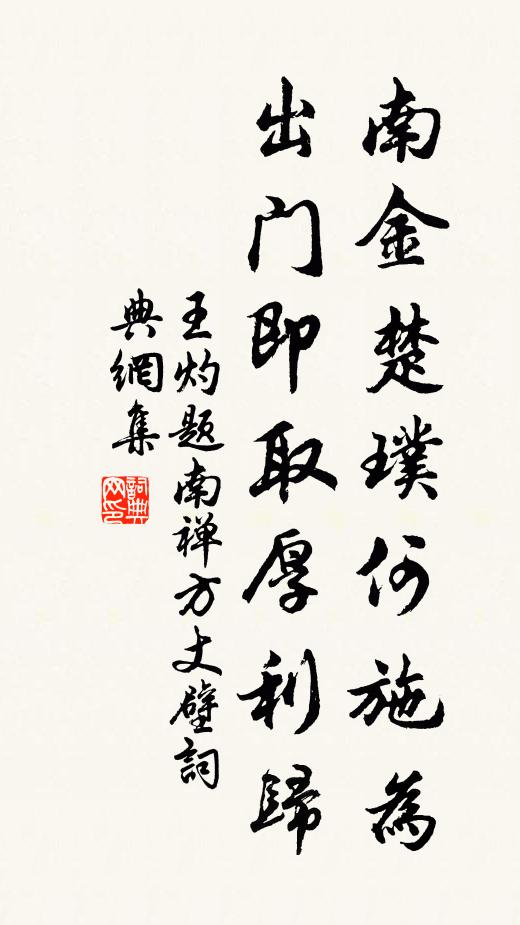 南金楚璞何施為
出门即取厚利歸
王灼题南禅方丈壁詞
典網集
詞典
网印